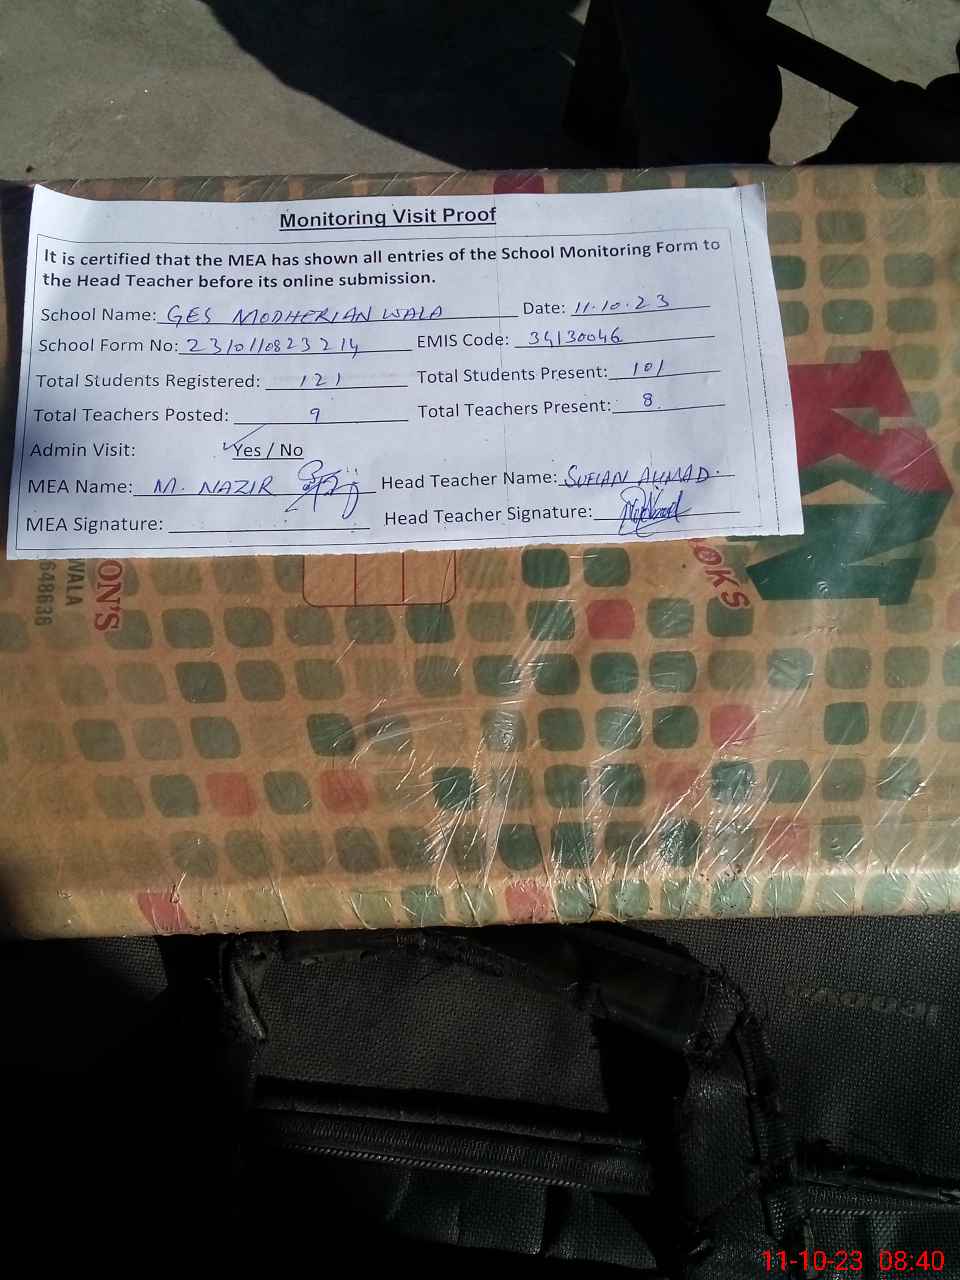 Monitoring Visit Proof
It is certified that the MEA has shown all entries of the School Monitoring Form to
the Head Teacher before its online submission.
School Name: GES MODHERIAN WALA Date: 11.10.23
School Form No: 2310110823214 EMIS Code: 34130046
Total Students Registered: 121 Total Students Present: 101
Total Teachers Posted: 9 Total Teachers Present: 8
Admin Visit: Yes / No
MEA Name: M. NAZIR Head Teacher Name: SUFIAN AHMAD.
MEA Signature: Head Teacher Signature:
ON'S
WALA
648636
OKS
11-10-23 08:40